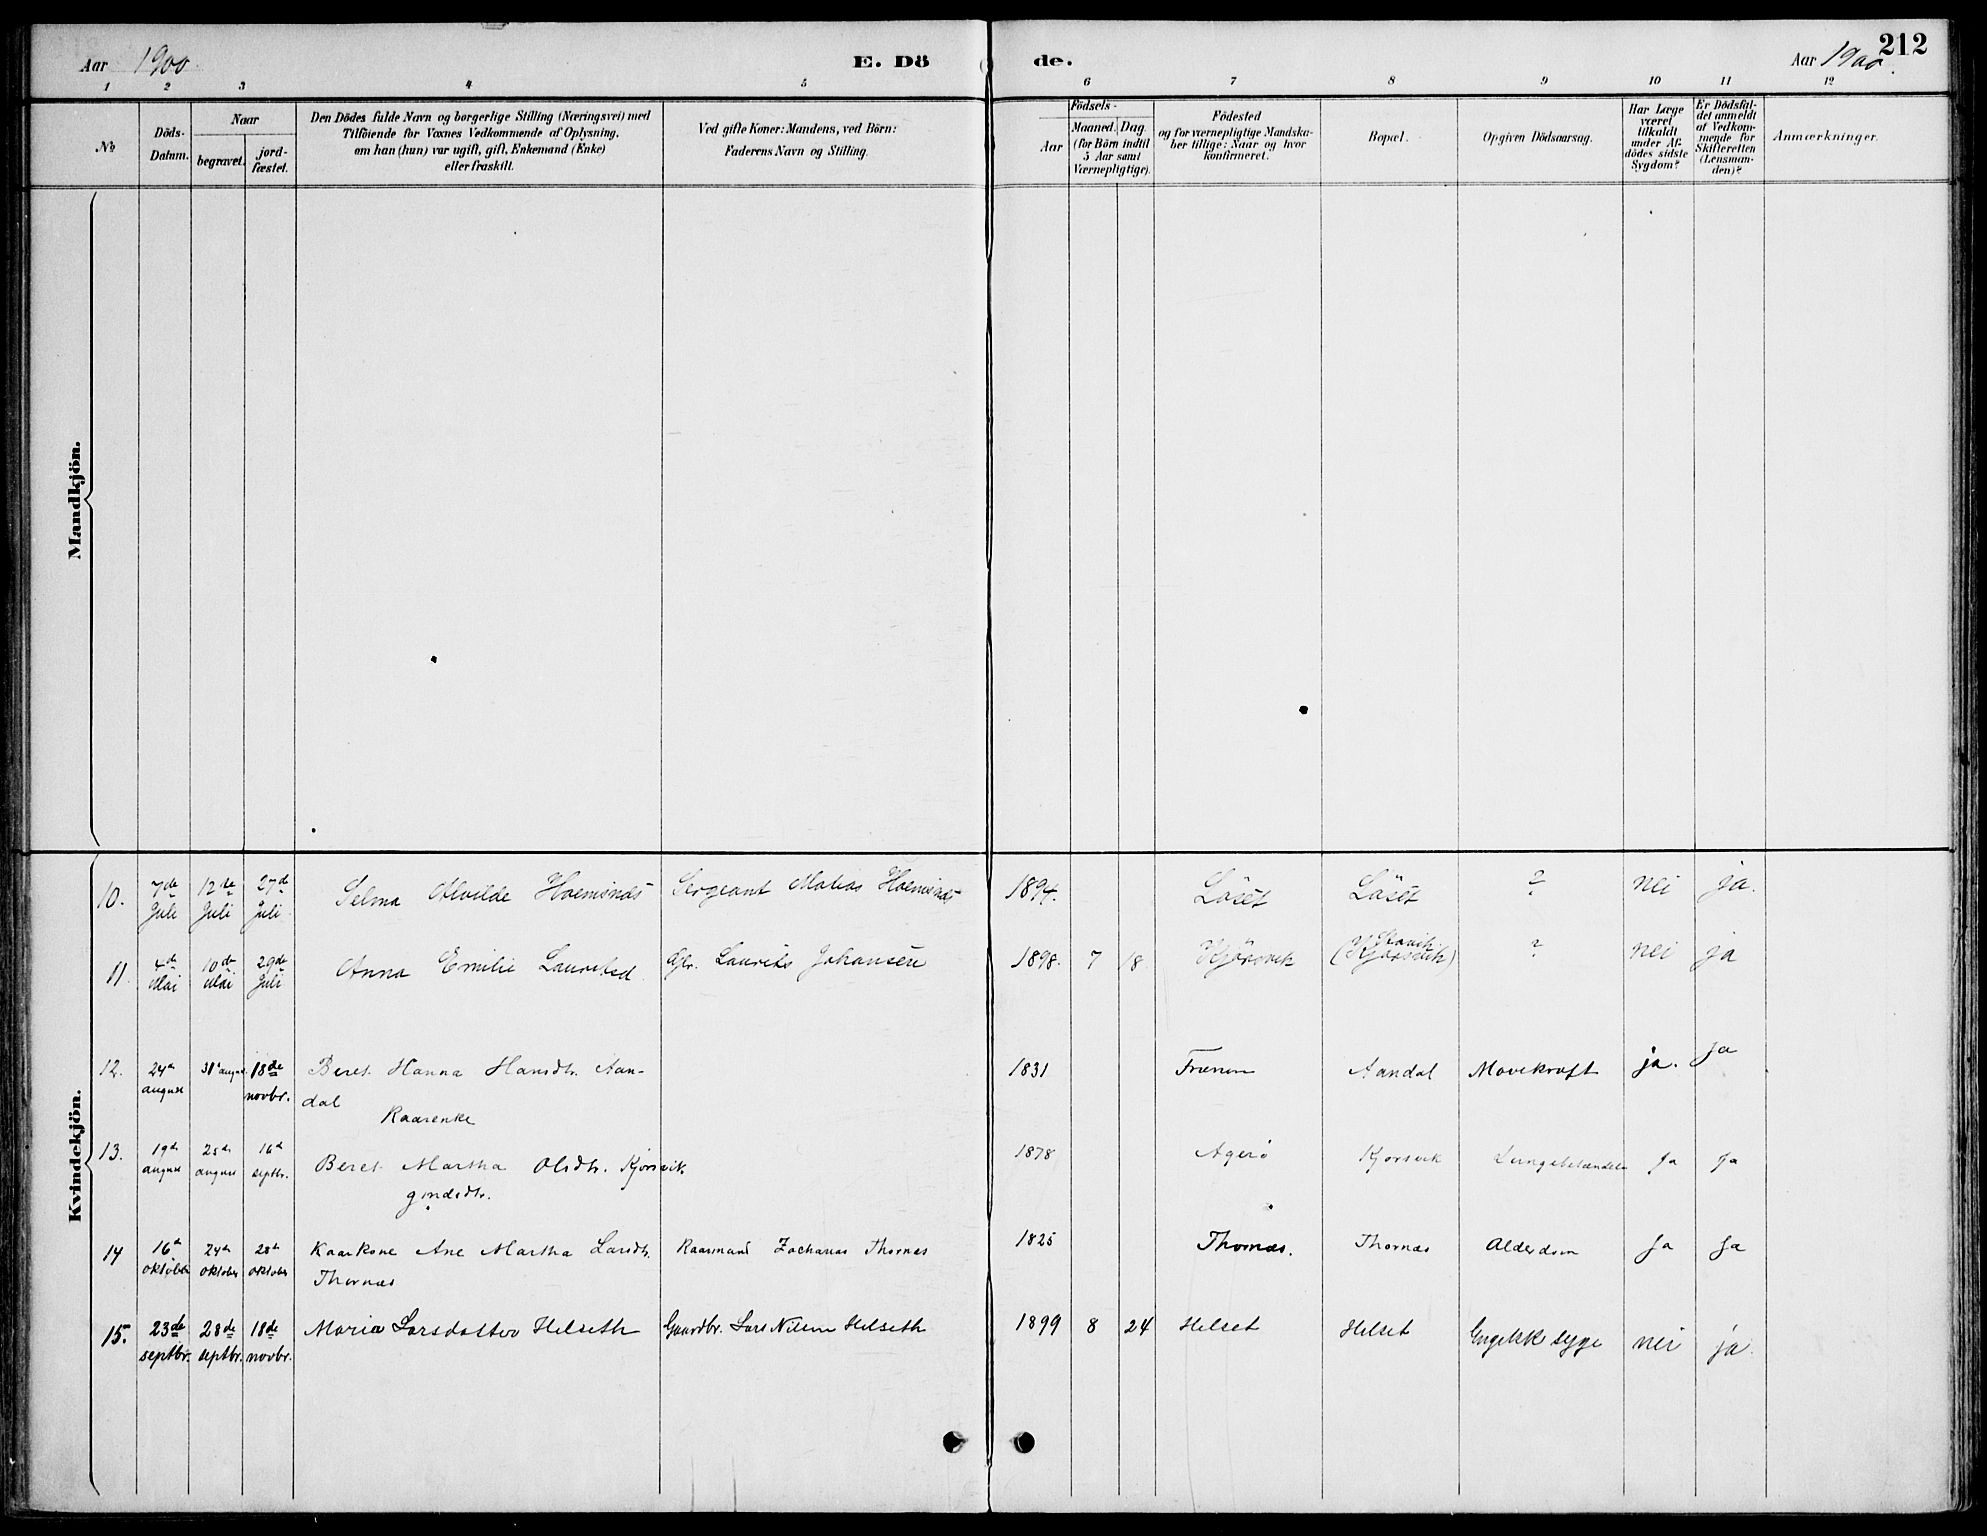 Aar 1900
E. Dö
de.
Aar 1900.
212
1 2 3 4 5 6 7 8 9 10 11 12
No
Döds-
Datum.
Naar
begravet.
jord-
fæstet.
Den Dödes fulde Navn og borgerlige Stilling (Næringsvei) med
Tilföiende for Voxnes Vedkommende af Oplysning,
om han (hun) var ugift, gift, Enkemand (Enke)
eller fraskilt.
Ved gifte Koner: Mandens, ved Börn:
Faderens Navn og Stilling.
Födsels-
Aar
Maaned. Dag.
(for Börn indtil
5 Aar samt
Værnepligtige).
Födested
og for værnepligtige Mandska-
ber tillige: Naar og hvor
konfirmeret.
Bopæl.
Opgiven Dödsaarsag.
Har Læge
været
tilkaldt
under Af-
dödes sidste
Sygdom?
Er Dödsfal-
det anmeldt
af Vedkom-
mende for
Skifteretten
(Lensman-
den)?
Anmærkninger.
Mandkjön.
Kvindekjön.
10. 7de Juli 12te Juli 27d Juli Selma Alvilde Hoemsnæs Sergeant Matias Hoemsnæs 1894. Löset Löset ? nei ja.
11 4de Mai 10de Mai 29de Juli Anna Emilie Lauritsd. Gbr. Laurits Johansen 1898. 7 18 Kjörsvik (Kjörsvik) ? nei ja
12. 24de august 31te august 18de novbr. Beret Hanna Hansdtr. Aan-
dal
Kaarenke
1831 Frænen Aandal Mavekræft ja. ja
13. 19de august 25de august 16de septbr. Beret Martha Olsdtr. Kjörsvik
1878 Agerö Kjörsvik Lungebetændelse ja ja
14 16de oktober 24de oktober 28de oktober Kaarkone Ane Martha Larsdtr.
Thornæs
Kaarmand Zacharias Thornæs 1825 Thornæs. Thornæs Alderdom ja ja
15. 23de septbr. 28de septbr. 18de novbr. Maria Larsdatter Helseth Gaardbr. Lars Nilsen Helseth 1899 8 24 Helset Helset Engelsk syge nei ja.